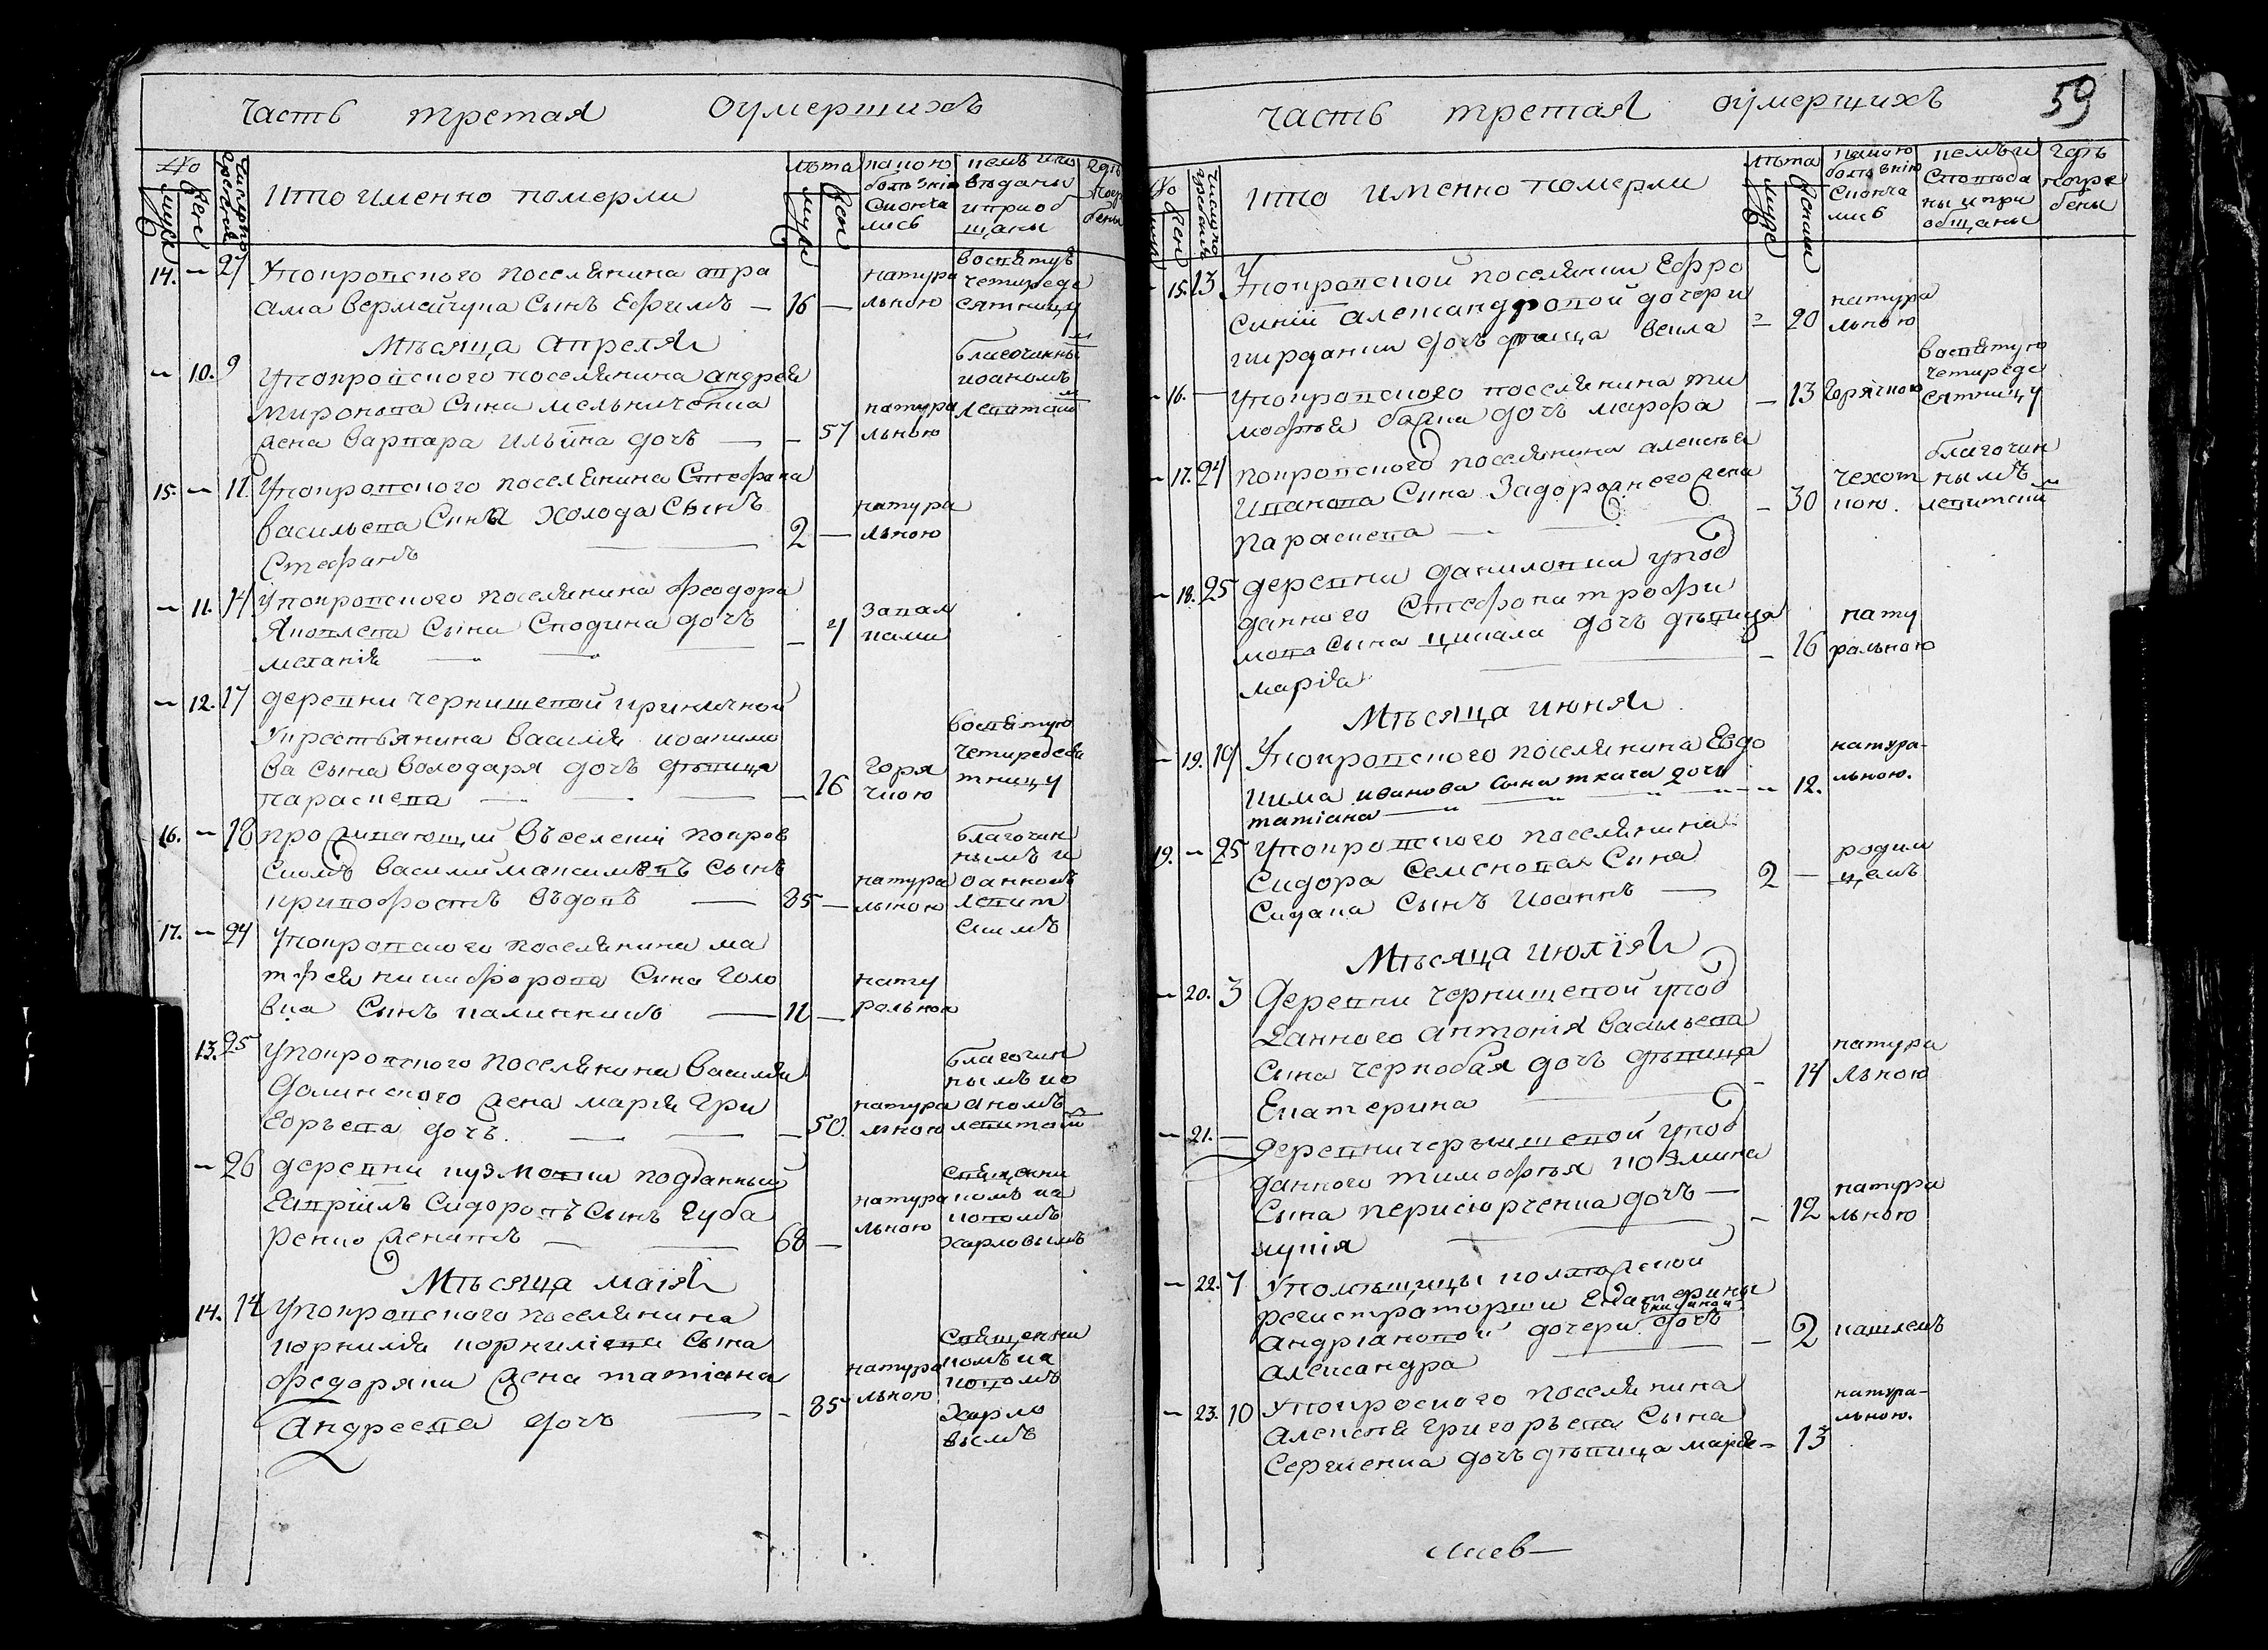 часть третая оумершихъ
№
мужс
жен
число погребенія
кто именно померли
лѣта
мужс
жен
какою болѣзнію скончались
кемъ исповѣданы и приобщаны
гдѣ погребены
14. — 27 У покровского поселянина авра
ама вермейчука Сынъ Ефимъ — 16 — натуральною
воспятую четиредесятницу
Мѣсяца Апреля
— 10. 9 у покровского поселянина андрея
миронова Сина мельниченка
жена варвара ильина дочъ — — 57 натуральною
благочинны иоаномъ левитским
15. — 11 у покровского поселянина Стефана
васильева Сина холода Сынъ
Стефанъ — 2 — натуральною
— 11. 14 у покровского поселянина феодора
Яковлева Сына Сподина дочъ
меланія — — 4 запалками
— 12. 17 деревни чернишевой икриничной
у крестьянина василия иоакимо
ва сына володаря дочъ дѣвица
параскева — — 16 горячкою
воспятую четиредесятницу
16. — 18 проживающий въ селении покров
скомъ василий максимовъ сынъ
кривофостъ вдовъ — 85 — натуральною
благочиннымъ иоанномъ левитскимъ
17. — 24 у покровского поселянина ма
тфея никифорова Сина голо
вка Сынъ калинникъ — 11 — натуральною
13. 25 у покровского поселянина василия
долинского жена мария гри
горъева дочъ. — — 50. натуральною
благочиннымъ иоаномъ левитским
— 26 деревни кузмовки подданный
гавриилъ Сидоровъ Сынъ губа
ренко женатъ — 68 — натуральною
священникомъ иаковомъ харловымъ
Мѣсяца маія
14. 14 у покровского поселянина
корнилия корнилієва Сына
федоряки жена татіана
Андреева дочъ — — 85 натуральною
священникомъ иаковомъ харловымъ
часть третая оумерщихъ 59
№
жен
число погребенія
кто именно померли
лѣта
мужс
женски
какою болѣзнію скончались
кемъ исповѣданы и приобщаны
гдѣ погребены
— 15. 13 У покровской поселянки Ефро
синіи александровой дочери
дочъ девица — 20 натуральною
— 16. — у покровского поселянина ти
мофѣя дочъ марфа — 13 горячкою
воспятую четиредесятницу
— 17. 24 покровского поселянина алексѣя
иванова Сина Задорожнего жена
параскева — — 30 чехоткою.
благочиннымъ левитским
— 18. 25 деревни даниловки у под
данного Стефана трофи
мова сына цикала дочъ дѣвица
марія — — 16 натуральною
Мѣсяца июня
— 19. 19 У покровского поселянина Евдо
кима иванова сына ткача дочъ
татіана — — 12. натуральною.
19. — 25 у покровского поселянина
Сидора Семенова Сина
Сидака Сынъ Иоаннъ — 2 — родимцемъ
Мѣсяца июлія
— 20. 3 Деревни чернищевой у под
данного антонія васильева
Сына чернобая дочъ дѣвица
Екатерина — — 14 натуральною
— 21. — деревни чернишевой у под
данного тимофѣя козмина
Сына перисюрченка дочъ —
лукія — — 12 натуральною
— 22. 7 У помѣщицы
регистраторши Екатерины
Андріановой дочери дочъ
александра — — 2 кашлемъ
— 23. 10 У покровского поселянина
Алексѣя григоръева Сына
Сергиенка дочъ дѣвица марія — 13 натуральною.